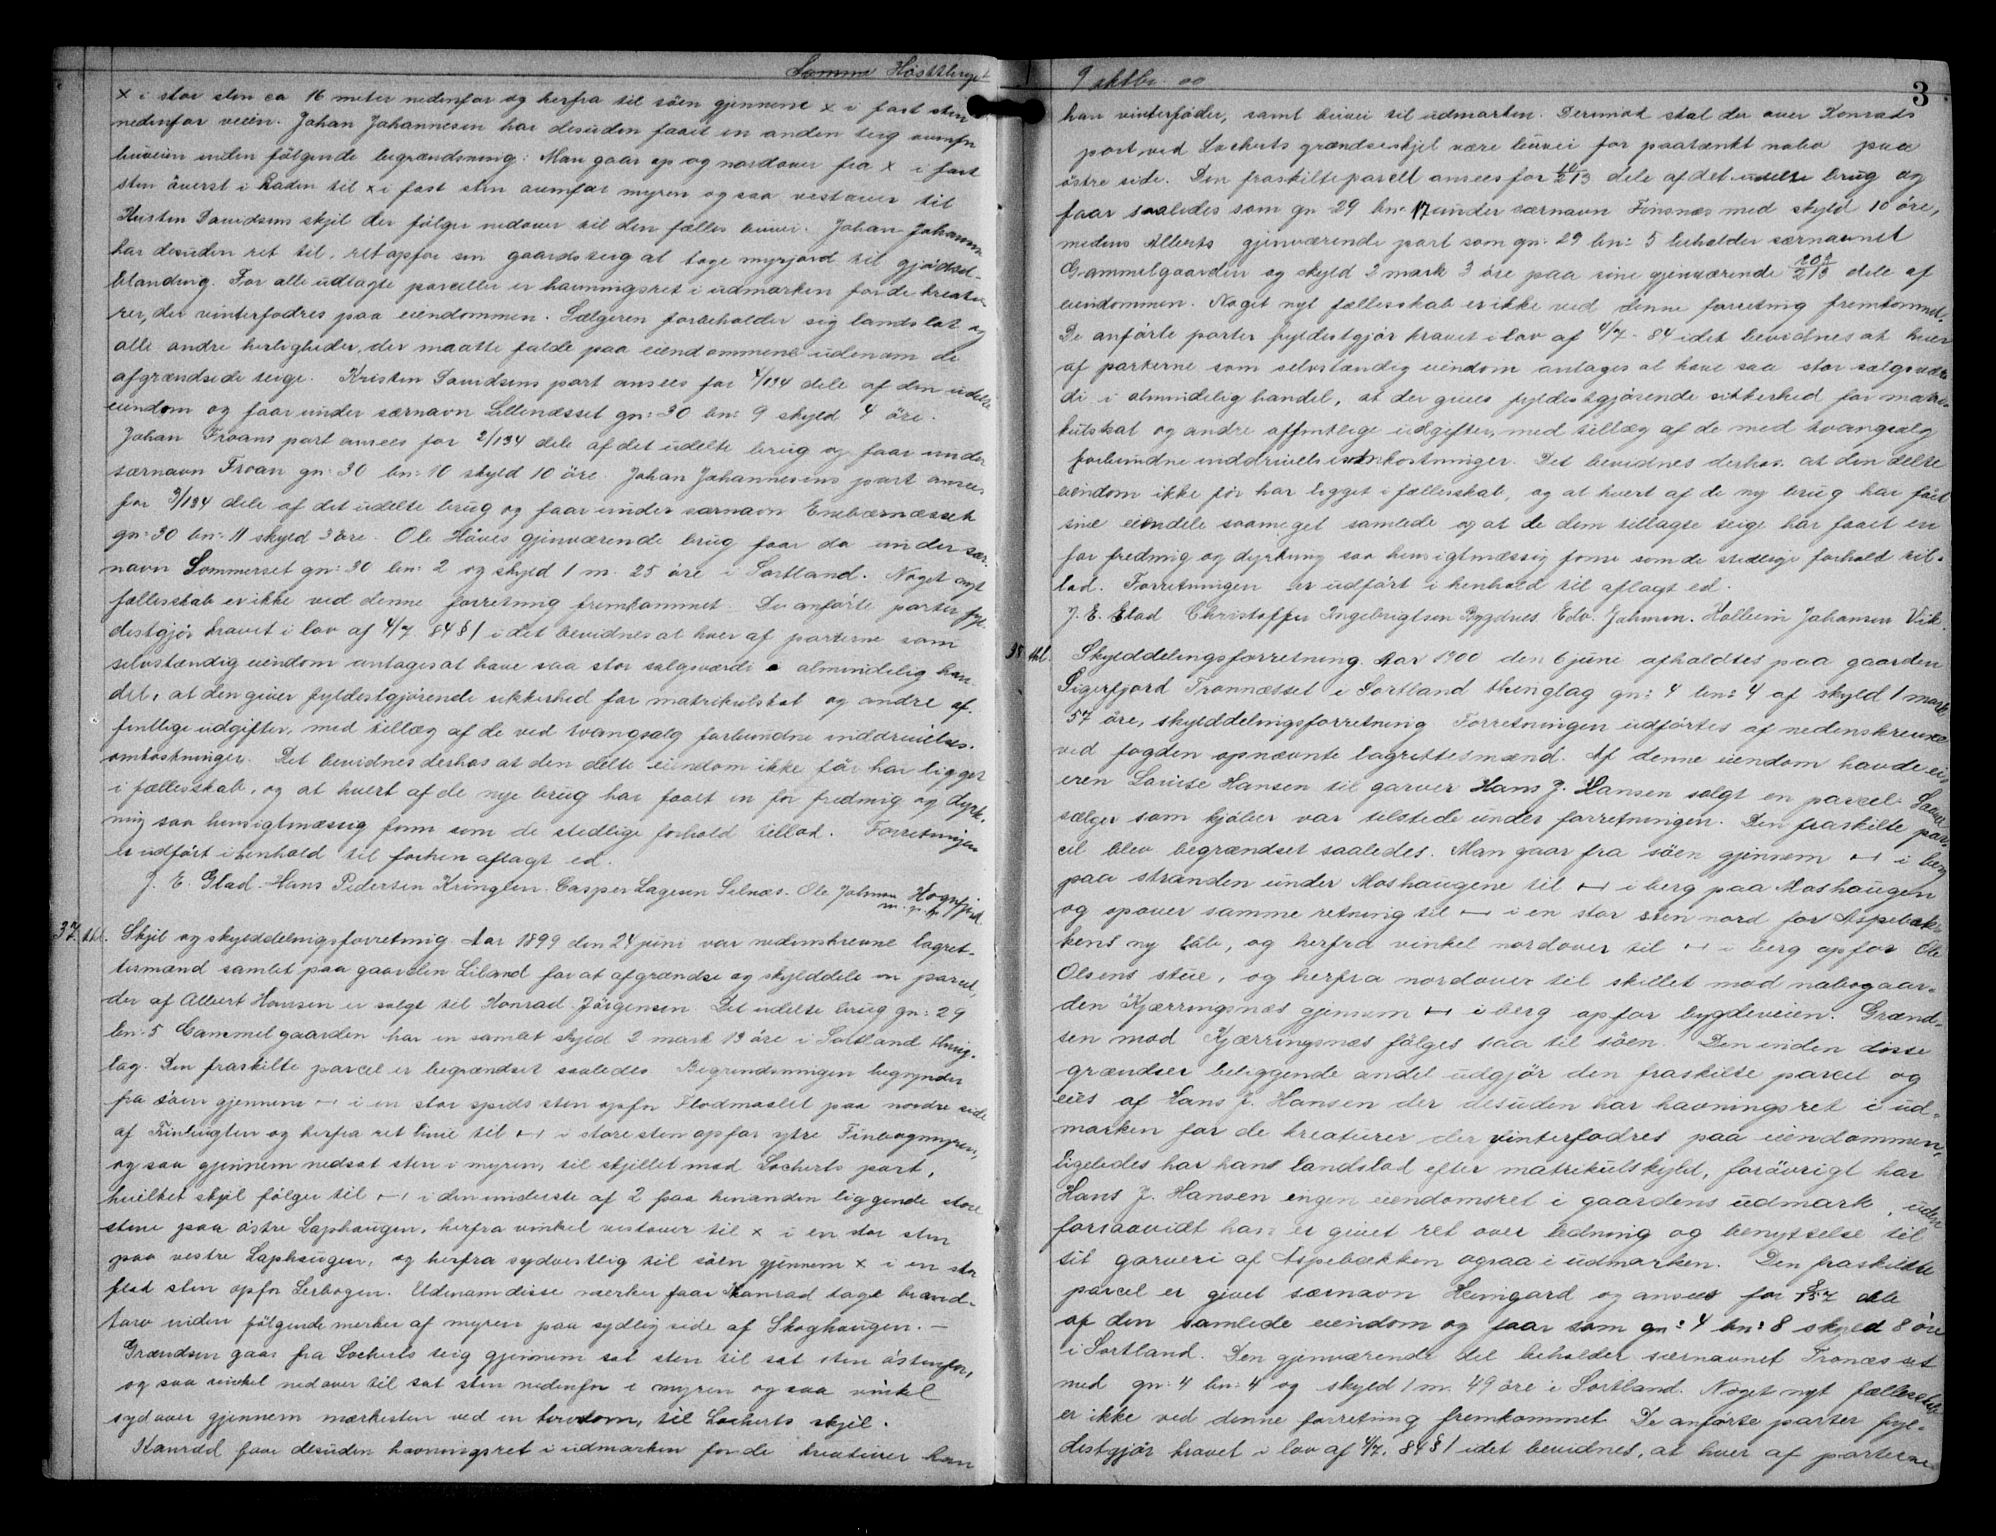 Samme Høsttinget
x i stor sten ca 16 meter nedenfor og herfra til söen gjennem x i fast sten
nedenfor veien. Johan Johannesen har desuden faaet en anden teig ovenfor
buveien inden fölgende begrændsning: Man gaar op og nordover fra x i fast
sten överst i Raden til x i fast sten ovenfor myren og saa vestover til
Kristen Davidsens skjil der fölger nedover til den fælles buvei. Johan Johannesen
har desuden ret til, ret opfor sin gaardsteig at tage myrjord til gjödsel-
blanding. For alle udlagte parceller er havningsret i udmarken for de kreatu-
rer, der vinterfodres paa eiendommen. Sælgeren forbeholder sig landslot og
alle andre herligheder, der maatte falde paa eiendommene udenom de
afgrændsede teige. Kristen Davidsens part ansees for 4/134 dele af den udelte
eiendom og faar under særnavn Lillenæsset gn: 30 bn: 9 skyld 4 öre.
Johan Troans part ansees for 2/134 dele af det udelte brug og faar under
særnavn Troan gn: 30 bn: 10 skyld 10 öre. Johan Johannesens part ansees
for 3/134 dele af det udelte brug og faar under særnavn Enebærnæsset
gn: 30 bn: 11 skyld 3 öre. Ole Håves gjenværende brug faar da under sær-
navn Sommerset gn: 30 bn: 2 og skyld 1 m. 25 öre i Sortland. Noget nyt
fællesskab er ikke ved denne forretning fremkommet. De anförte parter fyl-
destgjör kravet i lov af 4/7 84 § 1 i det bevidnes at hver af parterne som
selvstændig eiendom antages at have saa stor salgsværdi almindelig han-
del, at den giver fyldestgjörende sikkerhed for matrikulskat og andre of-
fentlige udgifter, med tillæg af de ved tvangsalg forbundne inddrivelses-
omkostninger. Det bevidnes derhos at den delte eiendom ikke för har ligget
i fællesskab, og at hvert af de nye brug har faaet en for fredning og dyrk-
ning saa hensigtmæssig form som de stedlige forhold tillod. Forretningen
er udfört i henhold til forhen aflagt ed.
J. E. Glad. Hans Pedersen Kringlen. Casper Lagesen Selnæs. Ole Johnsen Hognfjord
m. p. p.
37. thl. Skjil og skylddelingsforretning. Aar 1899 den 24 juni var nedenskrevne lagret-
tesmænd samlet paa gaarden Liland for at afgrændse og skylddele en parcel,
der af Albert Hansen er solgt til Konrad Jörgensen. Det udelte brug gn: 29
bn: 5 Gammelgaarden har en samlet skyld 2 mark 13 öre i Sortland thing-
lag. Den fraskilte parcel er begrændset saaledes. Begrændsningen begynder
fra söen gjennem ↔ i en stor spids sten opfor Flodmaalet paa nordre side
af Finbugten og herfra ret linie til ↔ i store sten opfor ytre Finbogmyren,
og saa gjennem nedsat sten i myren, til skjillet mod Lockerts part,
hvilket skjil fölger til ↔ i den underste af 2 paa hinanden liggende store
stene paa östre Laphaugen, herfra vinkel vestover til x i en stor sten
paa vestre Laphaugen, og herfra sydvestlig til söen gjennem x i en stor
flad sten opfor Lerbogen. Udenom disse merker faar Konrad tage brænd-
torv inden fölgende merker af myren paa sydlig side af Skoghaugen. —
Grændsen gaar fra Lockerts teig gjennem sat sten til sat sten östenfor,
og saa vinkel nedover til sat sten nedenfor i myren og saa vinkel
sydover gjennem mærkesten ved en torvdam, til Lockerts skjil.
Konrad faar desuden havningsret i udmarken for de kreaturer han
9 oktbr. 00
3
han vinterföder, samt buvei til udmarken. Derimod skal der over Konrads
part ved Lockerts grændseskjel være buvei for paatænkt nabo paa
östre side. Den fraskilte parcell ansees for 10/213 dele af det udelte brug og
faar saaledes som gn 29 bn: 17 under særnavn Finsnæs med skyld 10 öre,
medens Alberts gjenværende part som gn: 29 bn: 5 beholder særnavnet
Gammelgaarden og skyld 2 mark 3 öre paa sine gjenværende 203/213 dele af
eiendommen. Noget nyt fællesskab er ikke ved denne forretning fremkommet.
De anförte parter fyldestgjör kravet i lov af 4/7 - 84 idet bevidnes at hver
af parterne som selvstændig eiendom antages at have saa stor salgsvær-
di i almindelig handel, at der gives fyldestgjörende sikkerhed for matri-
kulskat og andre offentlige udgifter, med tillæg af de med tvangsalg
forbundne inddrivelsesomkostninger. Det bevidnes derhos at den delte
eiendom ikke för har ligget i fællesskab, og at hvert af de ny brug har fået
sine eiendele saameget samlede og at de dem tillagte teige har faaet en
for fredning og dyrkning saa hensigtmæssig form som de stedlige forhold til-
lod. Forretningen er udfört i henhold til aflagt ed.
J. E. Glad Christoffer Ingebrigtsen Bygdnes. Edv. Johnsen. Hallein Johansen Vik.
38 thl. Skylddelingsforretning. Aar 1900 den 6 juni afholdtes paa gaarden
Sigerfjord Tronnæsset i Sortland thinglag gn: 4 bn: 4 af skyld 1 mark
57 öre, skylddelingsforretning Forretningen udförtes af nedenskrevne
ved fogden opnævnte lagrettesmænd. Af denne eiendom havde ei-
eren Louise Hansen til garver Hans J. Hansen solgt en parcel. Saavel
sælger som kjöber var tilstede under forretningen. Den fraskilte par-
cel blev begrændset saaledes. Man gaar fra söen gjennem ↔ i berg
paa stranden under Moshaugene til ↔ i berg paa Moshaugen
og opover samme retning til ↔ i en stor sten nord for Aspebæk-
kens ny löb, og herfra vinkel nordover til ↔ i berg opfor Ole
Olsens stue, og herfra nordover til skillet mod nabogaar-
den Kjærringnæs gjennem ↔ i berg opfor bygdeveien. Grænd-
sen mod Kjærringnæs fölges saa til söen. Den inden disse
grændser beliggende andel udgjör den fraskilte parcel og
eies af Hans J. Hansen der desuden har havningsret i ud-
marken for de kreaturer der vinterfodres paa eiendommen,
ligeledes har hans landslod efter matrikulskyld, forövrigt har
Hans J. Hansen ingen eiendomsret i gaardens udmark, uden
forsaavidt han er givet ret over ledning og benyttelse til
sit garveri af Aspebækken ogsaa i udmarken. Den fraskildte
parcel er givet særnavn Heimgard og ansees for 8/157 dele
af den samlede eiendom og faar som gn: 4 bn: 8 skyld 8 öre
i Sortland. Den gjenværende del beholder særnavnet Tronæsset
med gn: 4 bn: 4 og skyld 1 m. 49 öre i Sortland. Noget nyt fællesskab
er ikke ved denne forretning fremkommet. De anförte parter fyl-
destgjör kravet i lov af 4/7. 84 § 1 idet bevidnes, at hver af parterne